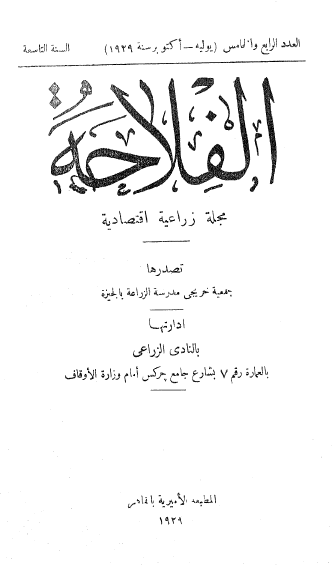 العدد الرابع والخامس (يوليه — أكتوبر سنة ١٩٢٩)
السنة التاسعة
الفلاحة
مجلة زراعية اقتصادية
تصدرها
جمعية خريجى مدرسة الزراعة بالجيزة
ادارتها
بالنادى الزراعى
بالعمارة رقم ٧ بشارع جامع چركس أمام وزارة الأوقاف
المطبعة الأميرية بالقاهرة
١٩٢٩